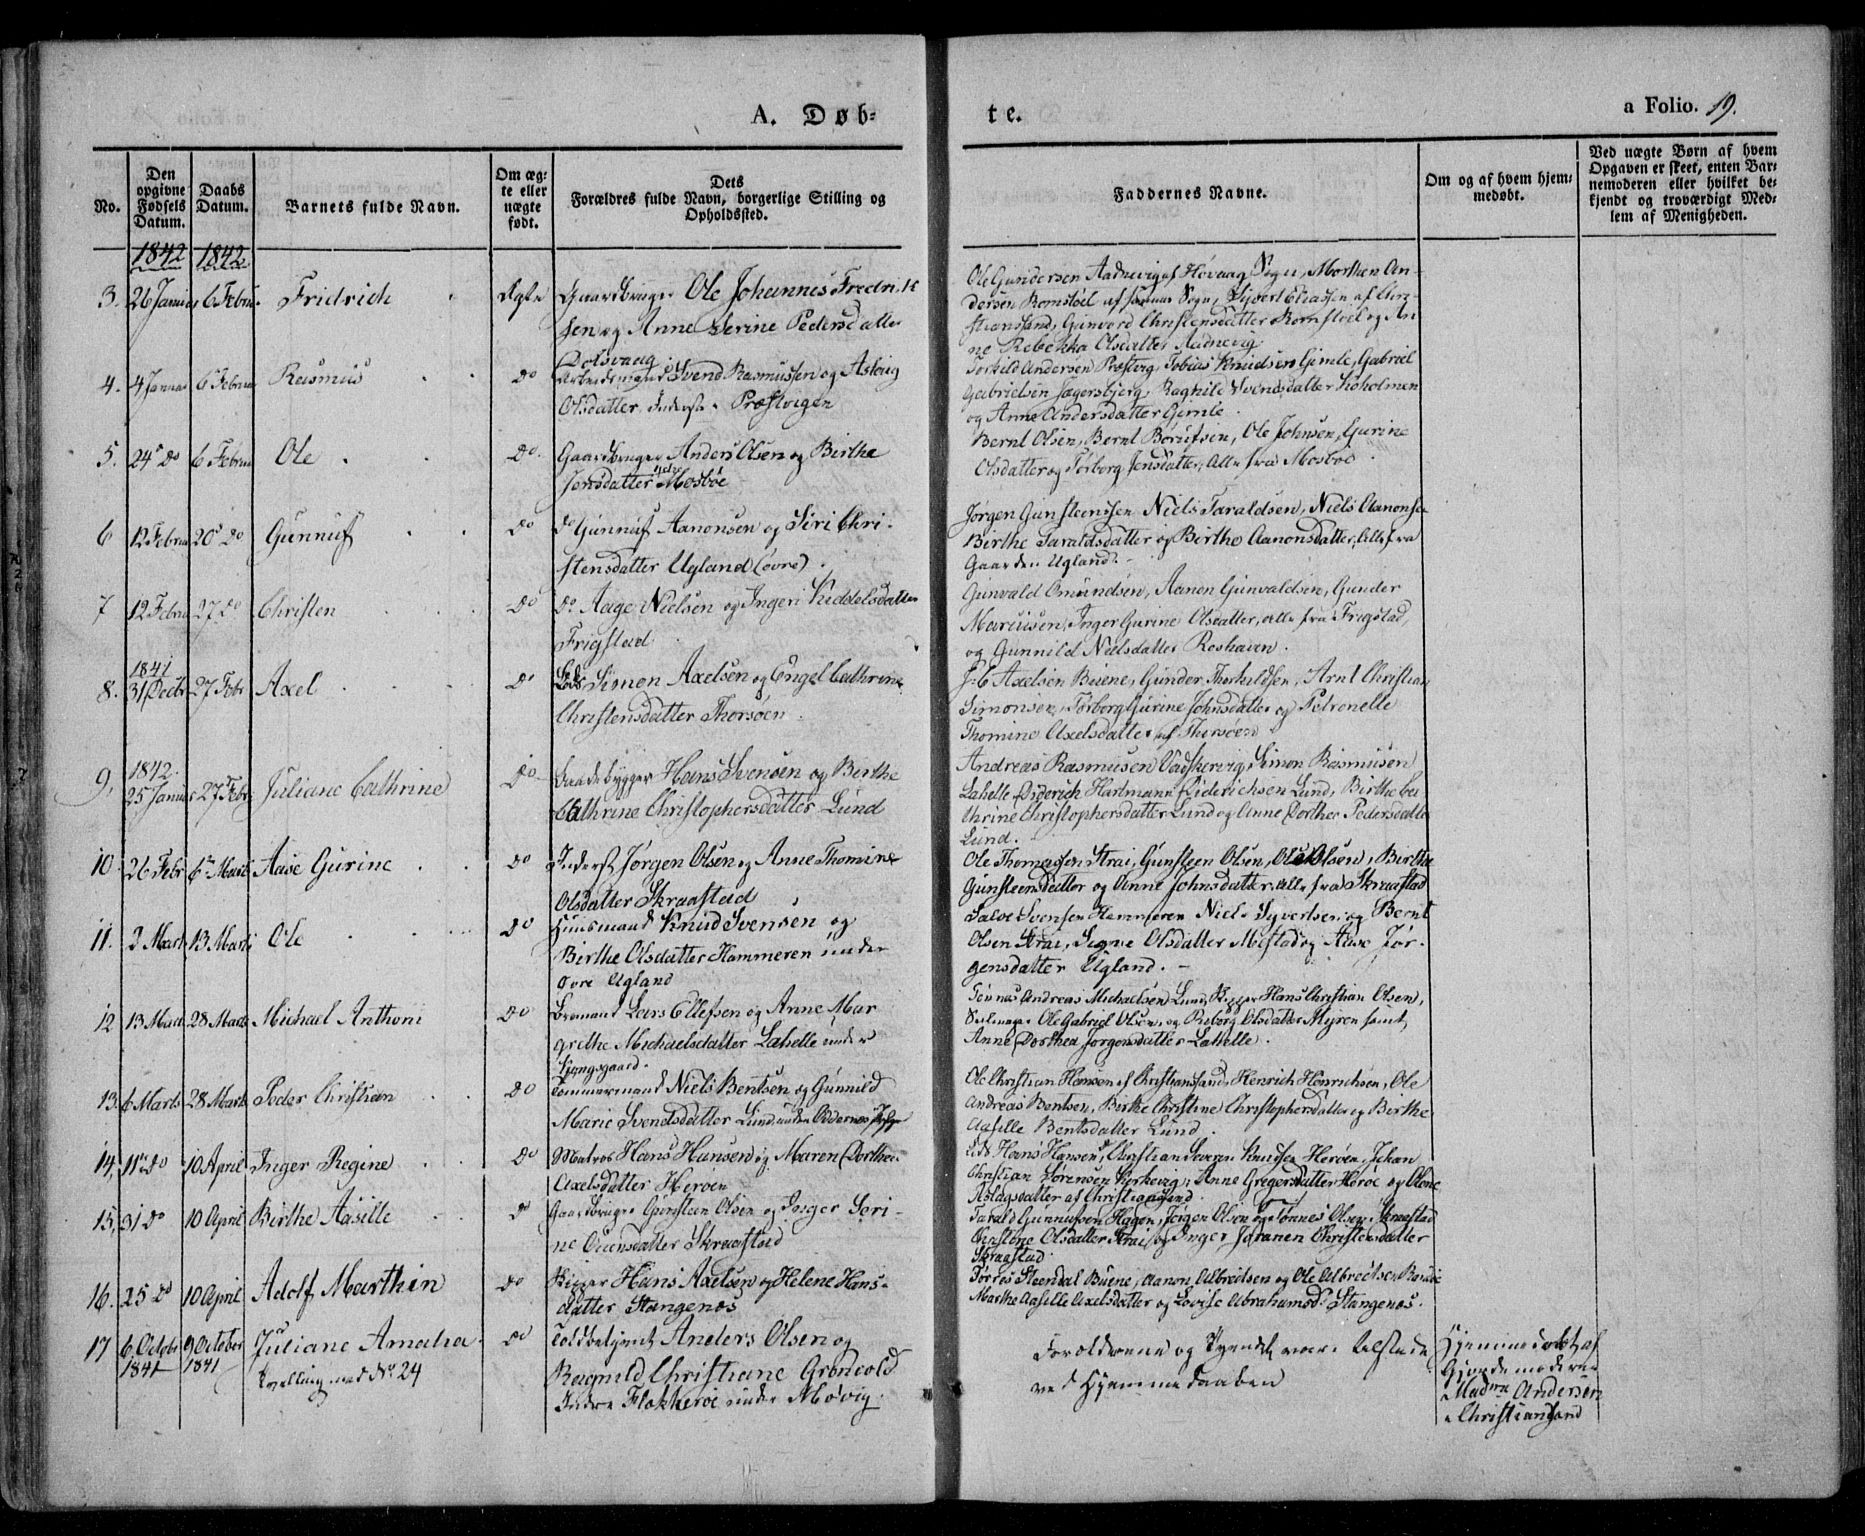 A. Døb-
te.
a Folio. 19.
No.
Den opgivne Fødsels Datum.
Daabs Datum.
Barnets fulde Navn.
Om ægte eller uægte født.
Dets Forældres fulde Navn, borgerlige Stilling og Opholdssted.
Faddernes Navne.
Om og af hvem hjemmedøbt.
Ved uægte Børn af hvem Opgaven er skeet, enten Barnemoderen eller hvilket bekjendt og troværdigt Medlem af Menigheden.
1842 1842
3. 26 Januar 6 Februar Fridrich Ægte Gaardbruger Ole Johannes Fredrik
sen og Anne Serine Pedersdatter
Dolsvaag
Ole Gundersen Aadnevig af Høvaag Sogn, Morthen An-
dersen Romstøl af samme Sogn, Syvert Eliassen af Chri-
stianssand, Gunvord Christensdatter Romstøel og An-
ne Rebekka Olsdatter Aadnevig
4. 4 Januar 6 Februar Rasmus do Arbeidsmand Svend Rasmussen og Aslaug
Olsdatter Inderst Præstvigen
Torkild Andersen Præstvig, Tobias Knudsen Gimle, Gabriel
Gabrielsen Jægersbjerg, Raghild Svendsdatter Koholmen
og Anne Andersdatter Gimle.
5. 24 do 6 Februar Ole do. Gaardbruger Anders Olsen og Birthe
Jensdatter Mosbøe
Bernt Olsen, Bernt Børufsen, Ole Johnsen, Gurine
Olsdatter og Torborg Jensdatter, Alle fra Mosbøe
6 12 Februar 20 do Gunnuf do do Gunnuf Aanonsen og Siri Chri-
stensdatter Ugland (øvre).
Jørgen Gunsteensen Niels Taraldsen, Niels Aanonsen
Birthe Taraldsdatter og Birthe Aanonsdatter, Alle fra
Gaarden Ugland.
7 12 Februar 27 do Christen do do Aage Nielsen og Ingeri Kiddelsdatter
Frigstad
Gunvald Omundsen, Aanon Gunvaldsen, Gunder
Marcusen, Inger Gurine Olsdatter, Alle fra Frigstad,
og Gunnild Nielsdatter Roshaven.
1841
8. 31 Decbr 27 Febr Axel do Lods Simon Axelsen og Engel Cathrine
Christensdatter Thorsøen.
J. C. Axelsen Buene, Gunder Therkildsen, Arnt Christian
Simonsen, Torborg Gurine Johnsdatter og Petronelle
Thomine Axelsdatter af Thorsøen
1842
9, 25 Januar 27 Febr Juliane Cathrine do Baadebygger Hans Svensen og Berthe
Cathrine Christophersdatter Lund
Andreas Rasmusen Vadskervig, Simon Rasmusen
Lahelle Diderich Hartmann Diderichsen Lund, Birthe Ca
thrine Christophersdatter Lund og Anne Dorthea Pedersdatter
Lund.
10. 26 Febr 6 Marts Aase Gurine do Inderst Jørgen Olsen og Anne Thomine
Olsdatter Skraastad
Ole Thomesen Strai, Gunsteen Olsen, Ole Olsen, Birthe
Gunsteensdatter og Anne Johnsdatter, Alle fra Skraastad
11. 2 Marts 13 Marts Ole do Huusmand Knud Svensen og
Birthe Olsdatter Hammeren under
øvre Ugland
Salve Svensen Hammeren Niels Syvertsen og Bernt
Olsen Strai, Signe Olsdatter Mestad og Aase Jør-
gensdatter Ugland. –
12 13 Marts 28 Marts Michael Anthoni do Lars Ellefsen og Anne Mar
grethe Michaelsdatter Lahelle under
Kongsgaard.
Tønnes Andreas Michaelsen Lund, Skipper Hans Christian Olsen,
Seilmager Ole Gabriel Olsen, og Roborg Olsdatter Myren samt
Anne Dorthea Jørgensdatter Lahelle.
13. 6 Marts 28 Marts Peder Christian do Tømmermand Niels Bentsen og Gunnild
Marie Svendsdatter Lund under Oddernes
Ole Christian Hansen af Christianssand, Henrich Henrichsen, Ole
Andreas Bentsen, Birthe Christine Christophersdatter og Birthe
Aasille Bentsdatter Lund.
14, 11 do 10 April Inger Regine do Matros Hans Hansen og Maren Dorthea
Axelsdatter Herøen
Lods Hans Hansen, Christian Severin Knudsen Herøen, Johan
Christian Sørensen Korkevig, Anne Gregersdatter Herøe og Olene
Aslagsdatter af Christianssand.
15, 31 do 10 April Birthe Aasille do Gaardbruger Gunsteen Olsen og Inger Seri-
ne Ouensdatter Skraastad
Tarald Gunnufsen Hagen, Jørgen Olsen og Tønnes Olsen Skraastad
Christine Olsdatter Strai og Inger Joranen Christensdatter
Skraastad.
16. 25 do 10 April Adolf Marthin do Skipper Hans Axelsen og Helene Hans-
datter Stangenæs
Torres Steendal Buene, Aanon Albredtsen og Ole Albredtsen Randøe
Marthe Aasille Axelsdatter og Lovise Abrahamsd. Stangenæs.
17 6 Octobr 1841 9 October 1841 Juliane Amalia
Tvelling med No 24
do Toldbetjent Anders Olsen og
Ragnild Christiane Grønvold
Indre Flekkerøe under Møvig.
Forældrene og Tyendet vare tilstede
ved Hjemmedaaben
Hjemmedøbt af
Gjordemoderen
Madme Andersen
i Christianssand